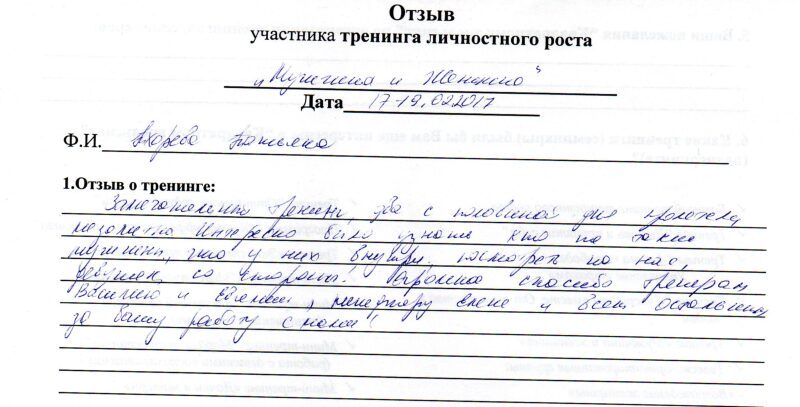 Отзыв
участника тренинга личностного роста
„Мужчина и Женщина“
Дата 17-19.02.2017
Ф.И. Татьяна
1.Отзыв о тренинге:
Замечательный тренинг, два с половиной дня пролетели
незаметно. Интересно было узнать кто же такие
мужчины, что у них внутри. посмотреть на нас,
девушек, со стороны! Огромное спасибо тренерам
Василию и Евгении, менеджеру Елене и всем остальным
за вашу работу с нами!